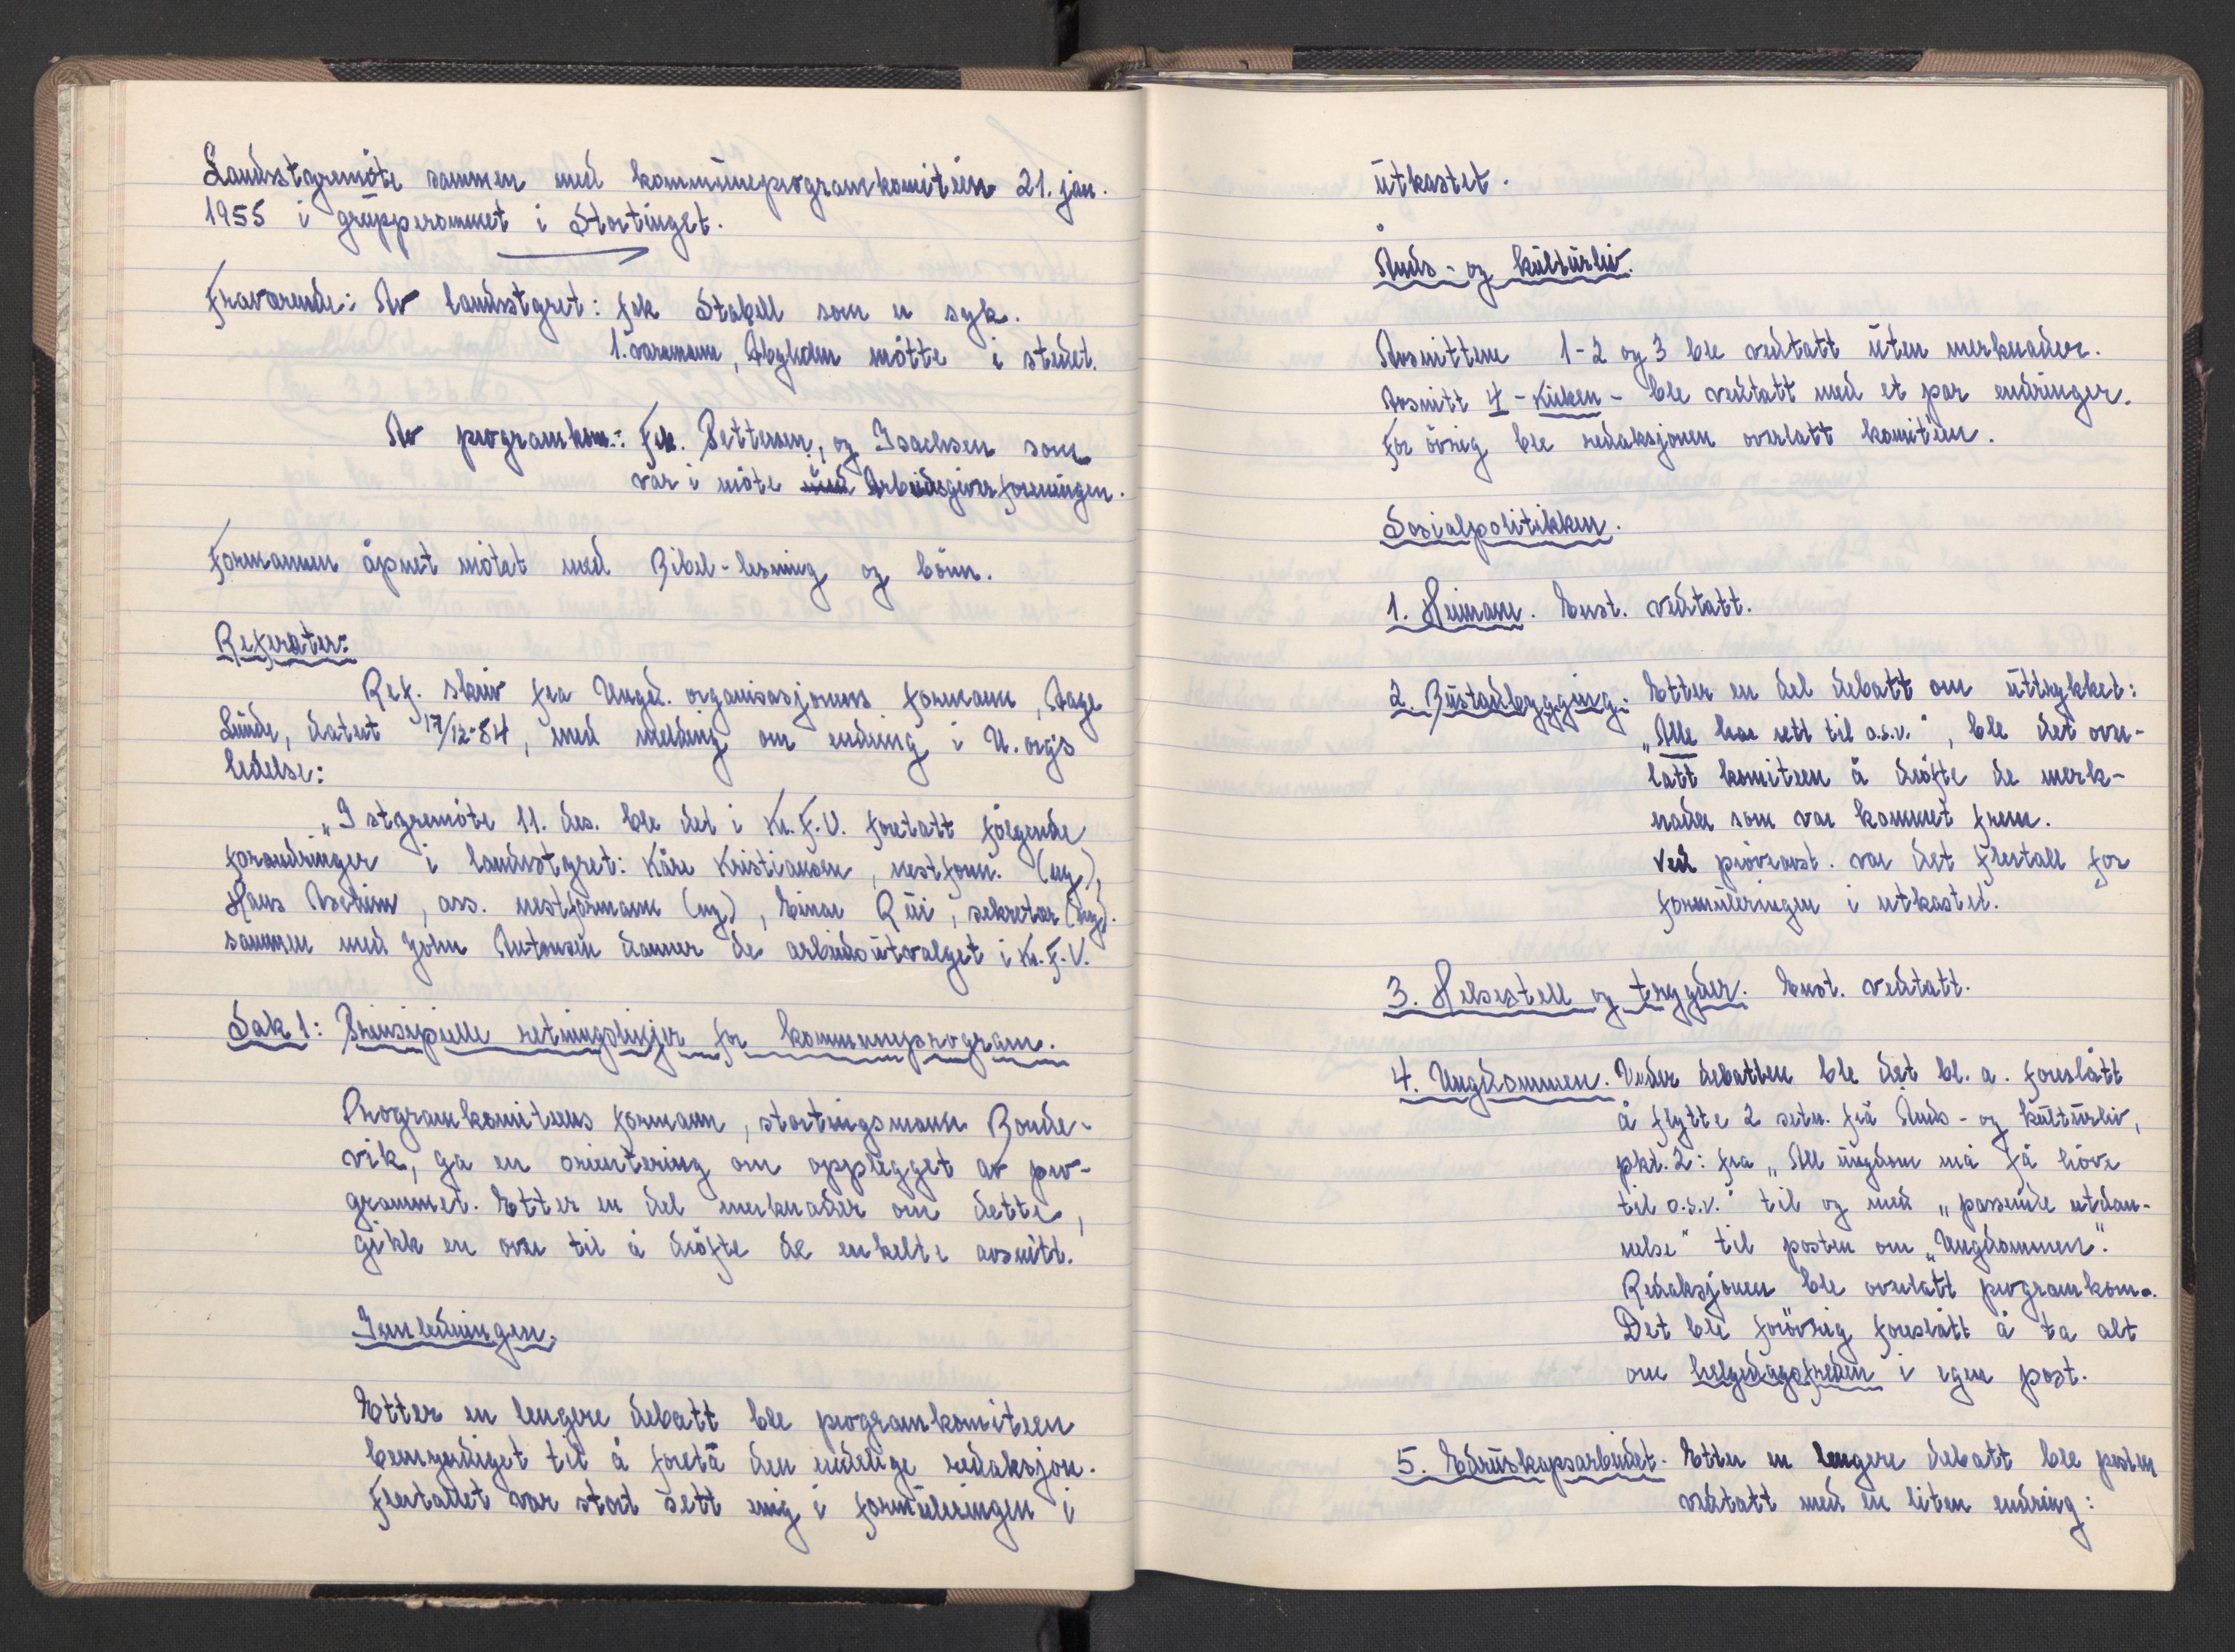 Landsstyremöte sammen med kommuneprogramkomiteen 21. jan.
1955 i grupperommet i Stortinget.
Fraværende: Av landsstyret: frk Stabell som er syk.
1. varamann, Abyholm mötte i stedet.
Av programkom.: Frk. Pettersen, og Isachsen som
var i möte med Arbeidsgiverforeningen.
Formannen åpnet mötet med Bibel-lesning og bönn.
Referater:
Ref. skriv fra Ungd. organisasjonens formann, Aage
Lunde, datert 17/12-54, med melding om endring i U. org's
ledelse:
„I styremöte 11. des. ble det i Kr. F. U. foretatt fölgende
forandringer i landsstyret: Kåre Kristiansen, nestform. (ny),
Hans , ass. nestformann (ny), Einar , sekretær (ny).
sammen med John Antonsen danner de arbeidsutvalget i Kr. F. U.
Sak 1: Prinsipielle retningslinjer for kommuneprogram.
Programkomiteens formann, stortingsmann Bonde-
vik, ga en orientering om opplegget av pro-
grammet. Etter en del merknader om dette,
gikk en over til å dröfte de enkelte avsnitt.
Innledningen.
Etter en lengere debatt ble programkomiteen
bemyndiget til å foreta den endelige redaksjon.
Flertallet var stort sett enig i formuleringen i
utkastet.
Ånds- og kulturliv.
Avsnittene 1-2 og 3 ble vedtatt uten merknader.
Avsnitt 4 - Kirken - ble vedtatt med et par endringer.
For övrig ble redaksjonen overlatt komiteen.
Sosialpolitikken.
1. Heimane. Enst. vedtatt.
2. Bustadbygging. Etter en del debatt om uttrykket:
„Alle har rett til o.s.v.", ble det over-
latt komiteen å dröfte de merk-
nader som var kommet frem.
Ved pröveavst. var det flertall for
formuleringen i utkastet.
3. Helsestell og trygder. Enst. vedtatt.
4. Ungdommen. Under debatten ble det bl. a. foreslått
å flytte 2 setn. frå Ånds- og kulturliv,
pkt. 2: fra „All ungdom må få höve
til o.s.v." til og med „passende utdan-
nelse" til posten om „Ungdommen".
Redaksjonen ble overlatt programkom.
Det ble forövrig foreslått å ta alt
om helgedagsfreden i egen post.
5. Edruskapsarbeidet. Etter en lengere debatt ble posten
vedtatt med en liten endring: